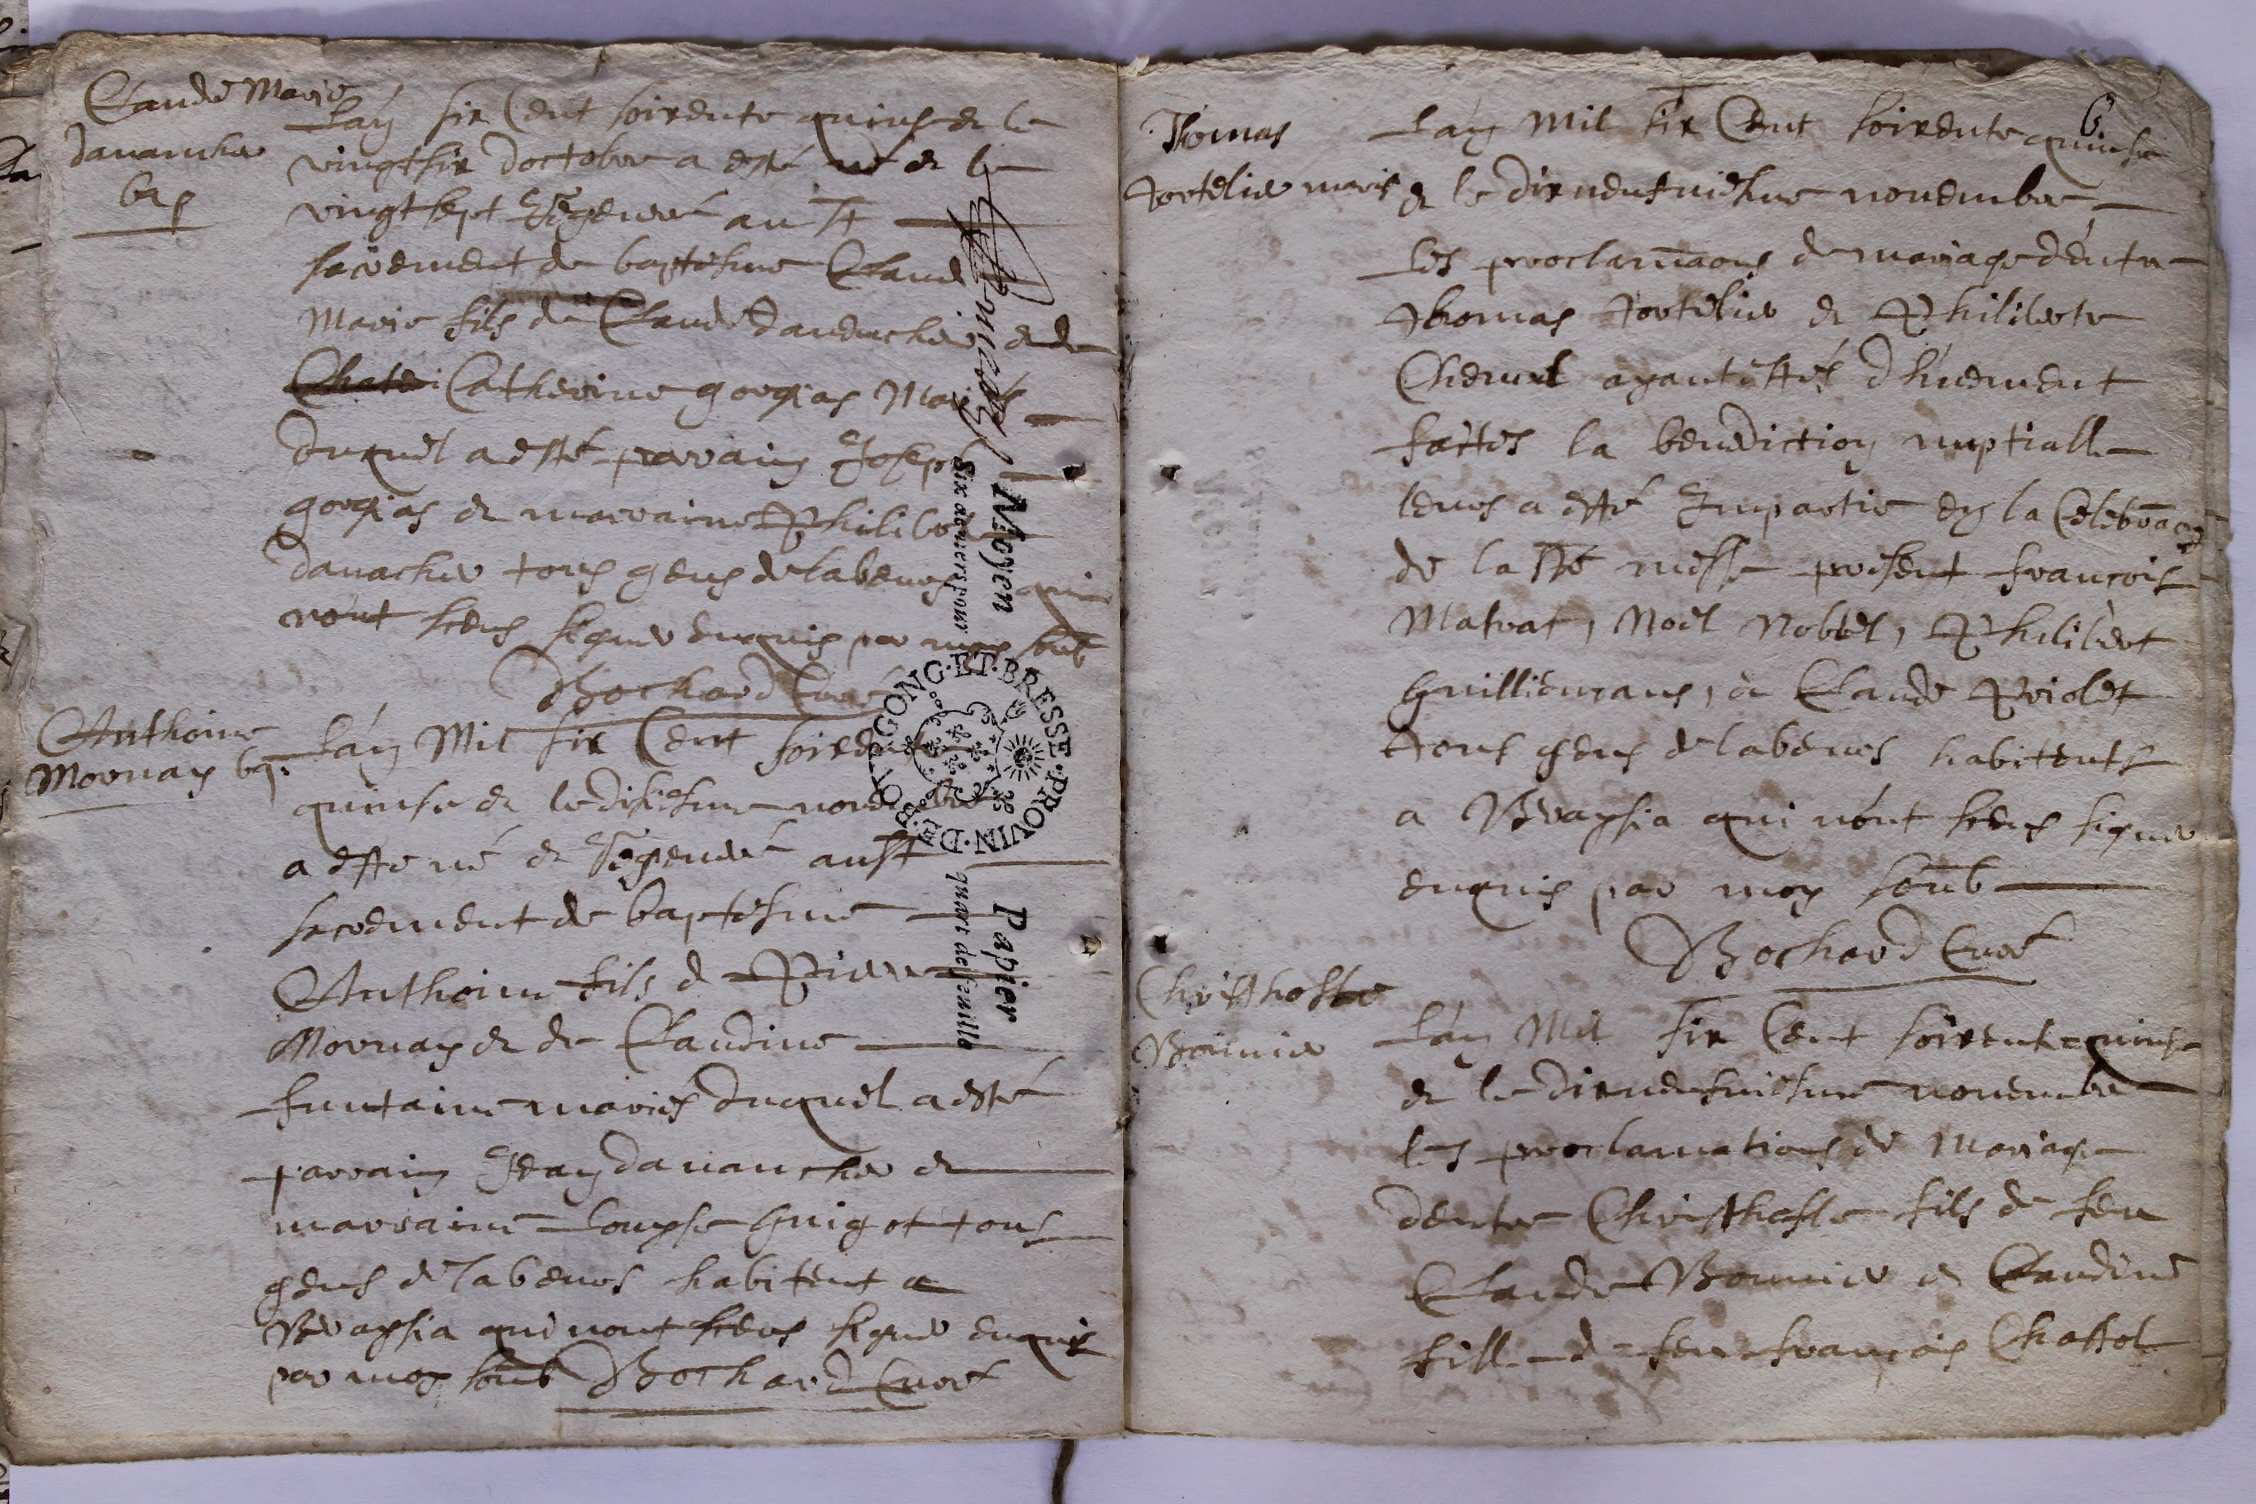 Claude Marie
davanche
bap
L'an six Cent soixente quinse et le
vingtsix doctobre a esté né et le
vingt sept Regeneré au St
sacrement de baptesme Claude
Marie fils de Claude davenche et de
Catherine gorgias Mariés
duquel a esté parrain Joseph
gorgias et marraine Philiberte
davanche tous gens de labeurs qui
n'ont sceus signer enquis par moy soub
Bochard Curé
Anthoine
Mornay bap.
L'an Mil six Cent soixente
quinse et le disiesme novembre
a este né et Regeneré au St
sacrement de baptesme
Anthoine fils de Pierre
Mornay et de Claudine
funtaine mariés duquel a esté
parrain Jean davanche et
marraine Louyse Guigot tous
gens de labeurs habitent a
Bvaysia qui nont sceus signer enquis
par moy soub Bochard Curé
Moyen Papier
Six deniers pour quart de feuille
GEN. DE BOURGONG. ET. BRESSE. PROVIN.
6
Thomas
tortelier mariés
L'an Mil six Cent soixente quinse
et le dixneufviesme novembre
Les proclamaons de mariage d'entre
Thomas tortelier et Philiberte
Chevrel ayant estés d'huement
faittes la benediction nuptialle
leurs a esté Impartie en la Celebraon
de la Ste messe present francois
Matrat, Noel Noblet, Philibert
Guilliemans, et Claude Priolet
tous gens de labeurs habitents
a Bvaysia qui n'ont sceus signer
enquis par moy soub
Bochard Curé
Christhofle
Bonnier
L'an Mil six Cent soixente quinse
et le dixneufviesme novembre
les proclamations de Mariage
dentre Christhofle fils de feu
Claude Bonnier et Claudine
fille de feu francois Chassot